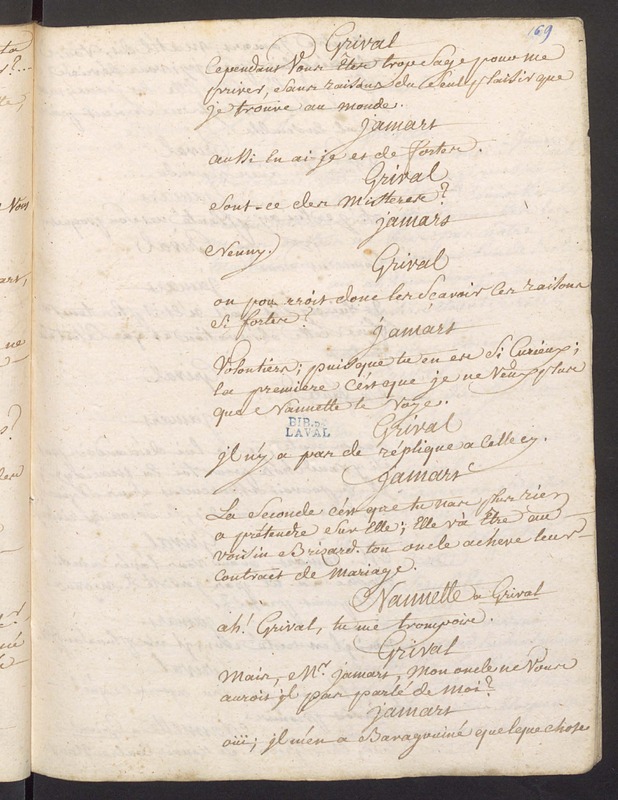 169
Grival
Cependant vous êtes trop sage pour me
priver, sans raisons du seul plaisir que
je trouve au monde.
jamars
aussi en ai-je et de fortes.
Grival
sont-ce des misteres?
jamars
Nenny.
Grival
on pourroit donc les scavoir ces raisons
si fortes?
jamars
Volontiers; puisque tu en es si curieux;
la premiere c'est que je ne veux plus
que Nannette te voye.
BIB. DE
LAVAL
Grival
jl n'y a pas de réplique a celle cy.
jamars
La seconde c'est que tu n'as plus rien
a prétendre sur elle; elle va être au
voisin Brizard. ton oncle acheve leur
contrait de mariage.
Nannette a Grival
ah! Grival, tu me trompois.
Grival
Mais, Mr. jamars, mon oncle ne vous
auroit jl pas parlé de moi?
jamars
oüi; jl m'en a Baragouiné quelque chose